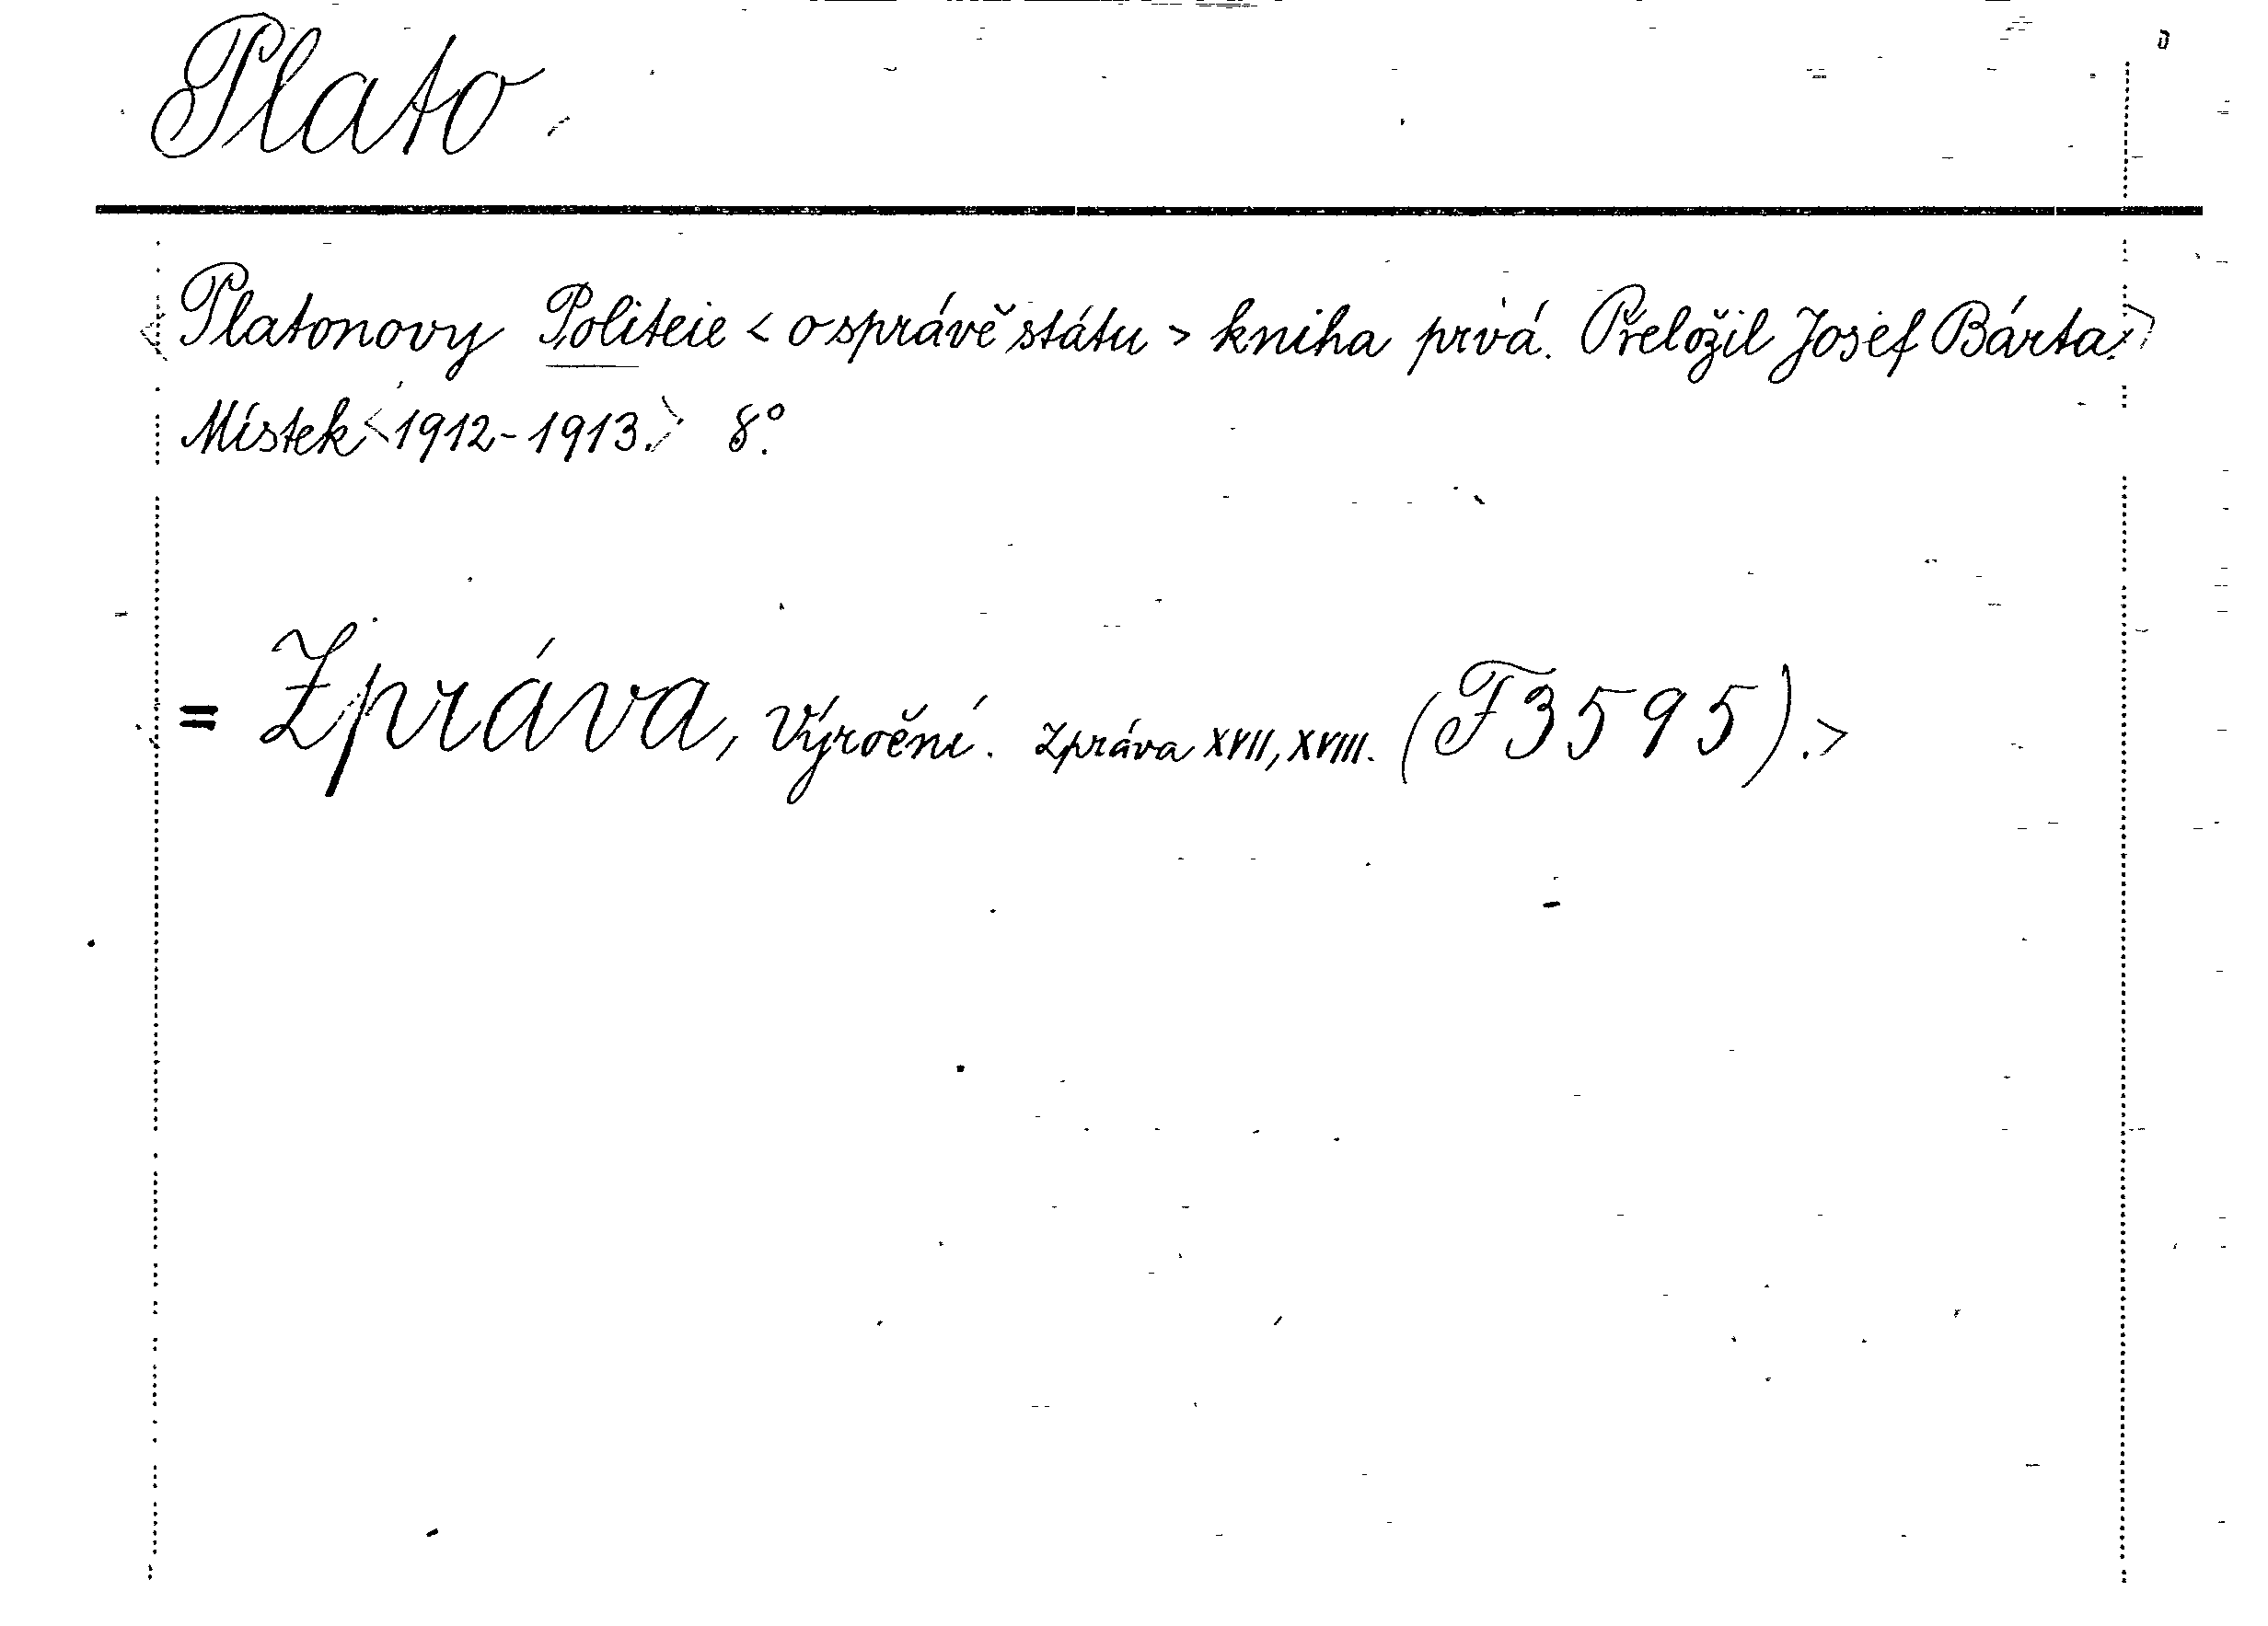 Plato
<Platonovy Politeie <o správě státu> kniha prvá. Přeložil Josef Bárta.>
Místek <1912-1913.> 8°.
= Zpráva, Výroční. Zpráva XVII, XVIII. (F3595).>